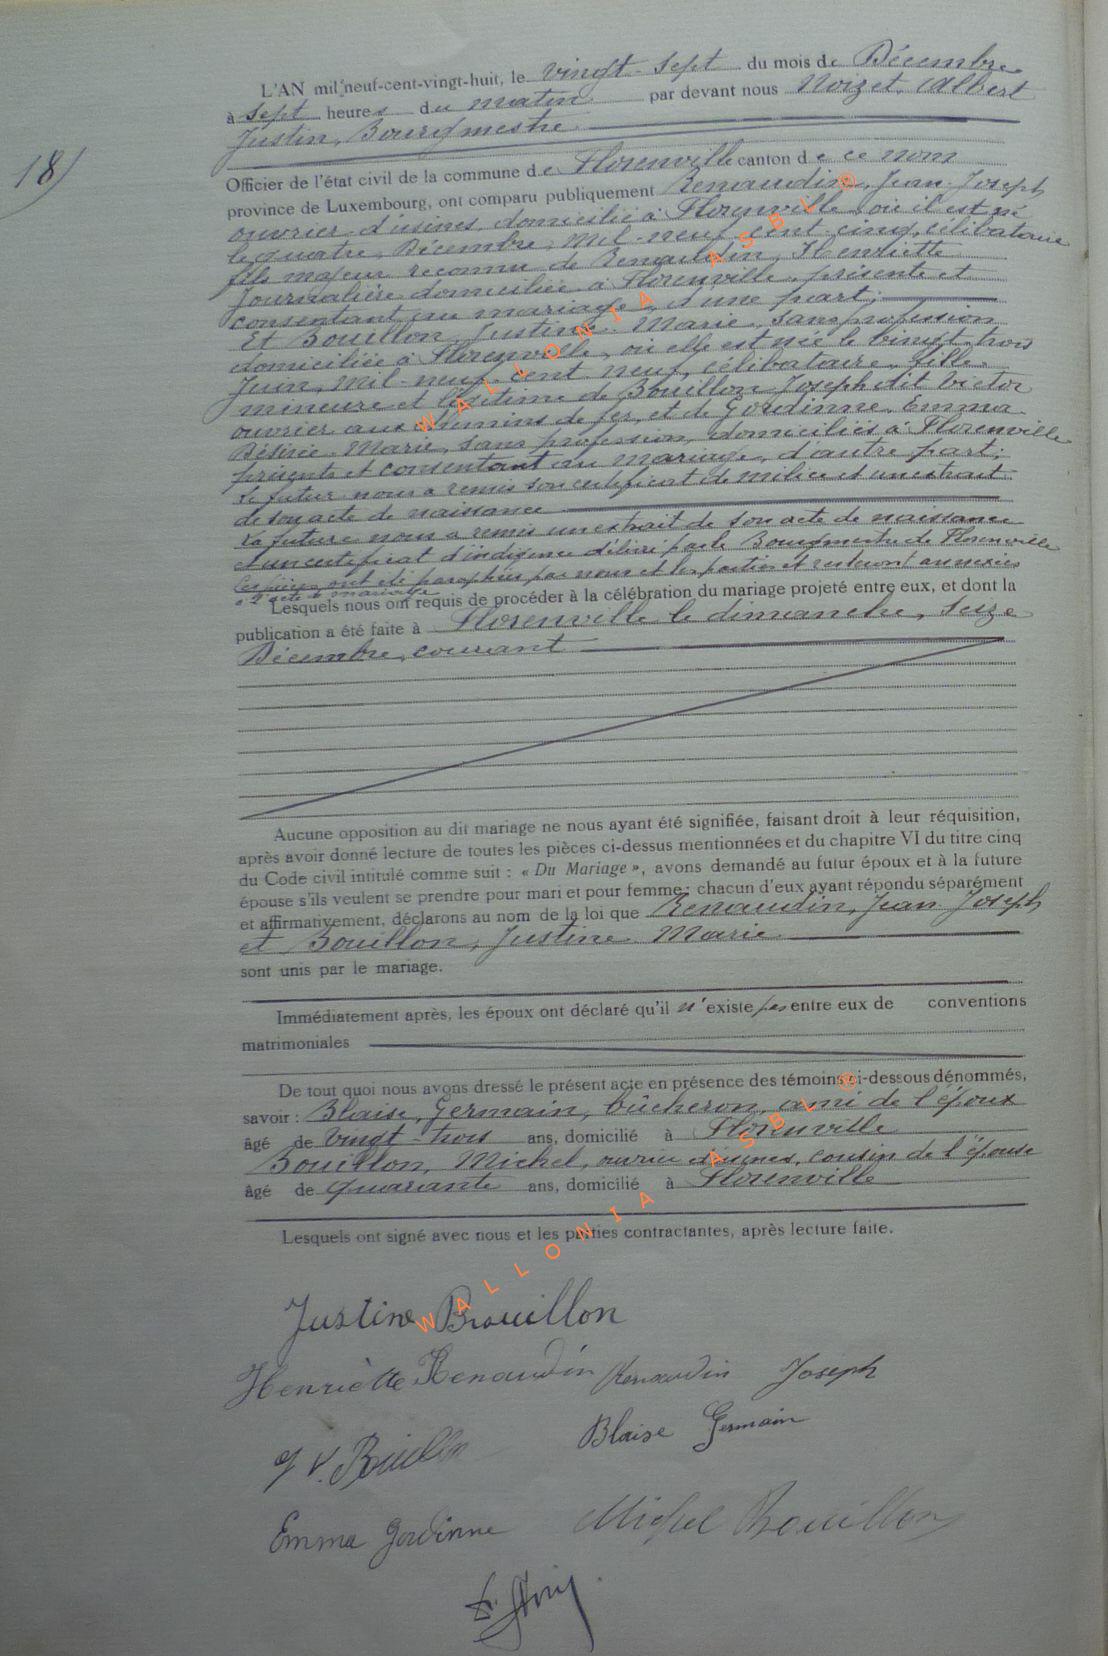 18)
L'AN mil neuf-cent-vingt-huit, le vingt-sept du mois de Décembre
à sept heures du matin par devant nous Noizet, Albert
Justin, Bourgmestre
Officier de l'état civil de la commune de Florenville canton de ce nom
province de Luxembourg, ont comparu publiquement Renaudin, Jean-Joseph
ouvrier d'usines, domicilié à Florenville où il est né
le quatre Décembre mil-neuf-cent cinq, célibataire
fils majeur reconnu de Renaudin, Henriette
Journalière domiciliée à Florenville, présente et
consentant au mariage, d'une part;
Et Bouillon, Justine-Marie, sans profession
domiciliée à Florenville, où elle est née le vingt-trois
Juin, mil-neuf-cent neuf, célibataire, fille
mineure et légitime de Bouillon Joseph dit Victor
ouvrier aux chemins de fer, et de Gourdinne, Emma
Désirée-Marie, sans profession, domiciliés à Florenville
présents et consentant au mariage, d'autre part;
Le futur nous a remis son certificat de milice et un extrait
de son acte de naissance
La future nous a remis un extrait de son acte de naissance
et un certificat d'indigence délivré par le Bourgmestre de Florenville
Ces pièces ont été paraphées par nous et les parties et resteront annexées
à l'acte de mariage
Lesquels nous ont requis de procéder à la célébration du mariage projeté entre eux, et dont la
publication a été faite à Florenville le dimanche, seize
Décembre, courant
Aucune opposition au dit mariage ne nous ayant été signifiée, faisant droit à leur réquisition,
après avoir donné lecture de toutes les pièces ci-dessus mentionnées et du chapitre VI du titre cinq
du Code civil intitulé comme suit : « Du Mariage », avons demandé au futur époux et à la future
épouse s'ils veulent se prendre pour mari et pour femme; chacun d'eux ayant répondu séparément
et affirmativement, déclarons au nom de la loi que Renaudin, Jean-Joseph
et Bouillon, Justine-Marie
sont unis par le mariage.
Immédiatement après, les époux ont déclaré qu'il n'existe pas entre eux de conventions
matrimoniales
De tout quoi nous avons dressé le présent acte en présence des témoins ci-dessous dénommés,
savoir : Blaise, Germain, bûcheron, ami de l'époux
âgé de vingt-trois ans, domicilié à Florenville
Bouillon, Michel, ouvrier d'usines, cousin de l'épouse
âgé de quarante ans, domicilié à Florenville
Lesquels ont signé avec nous et les parties contractantes, après lecture faite.
Justine Brouillon
Henriètte Renaudin Renaudin Joseph
J V. Bouillon Blaise Germain
Emma Gordinne Michel Bouillon
WALLONIA ASBL ®
WALLONIA ASBL ®